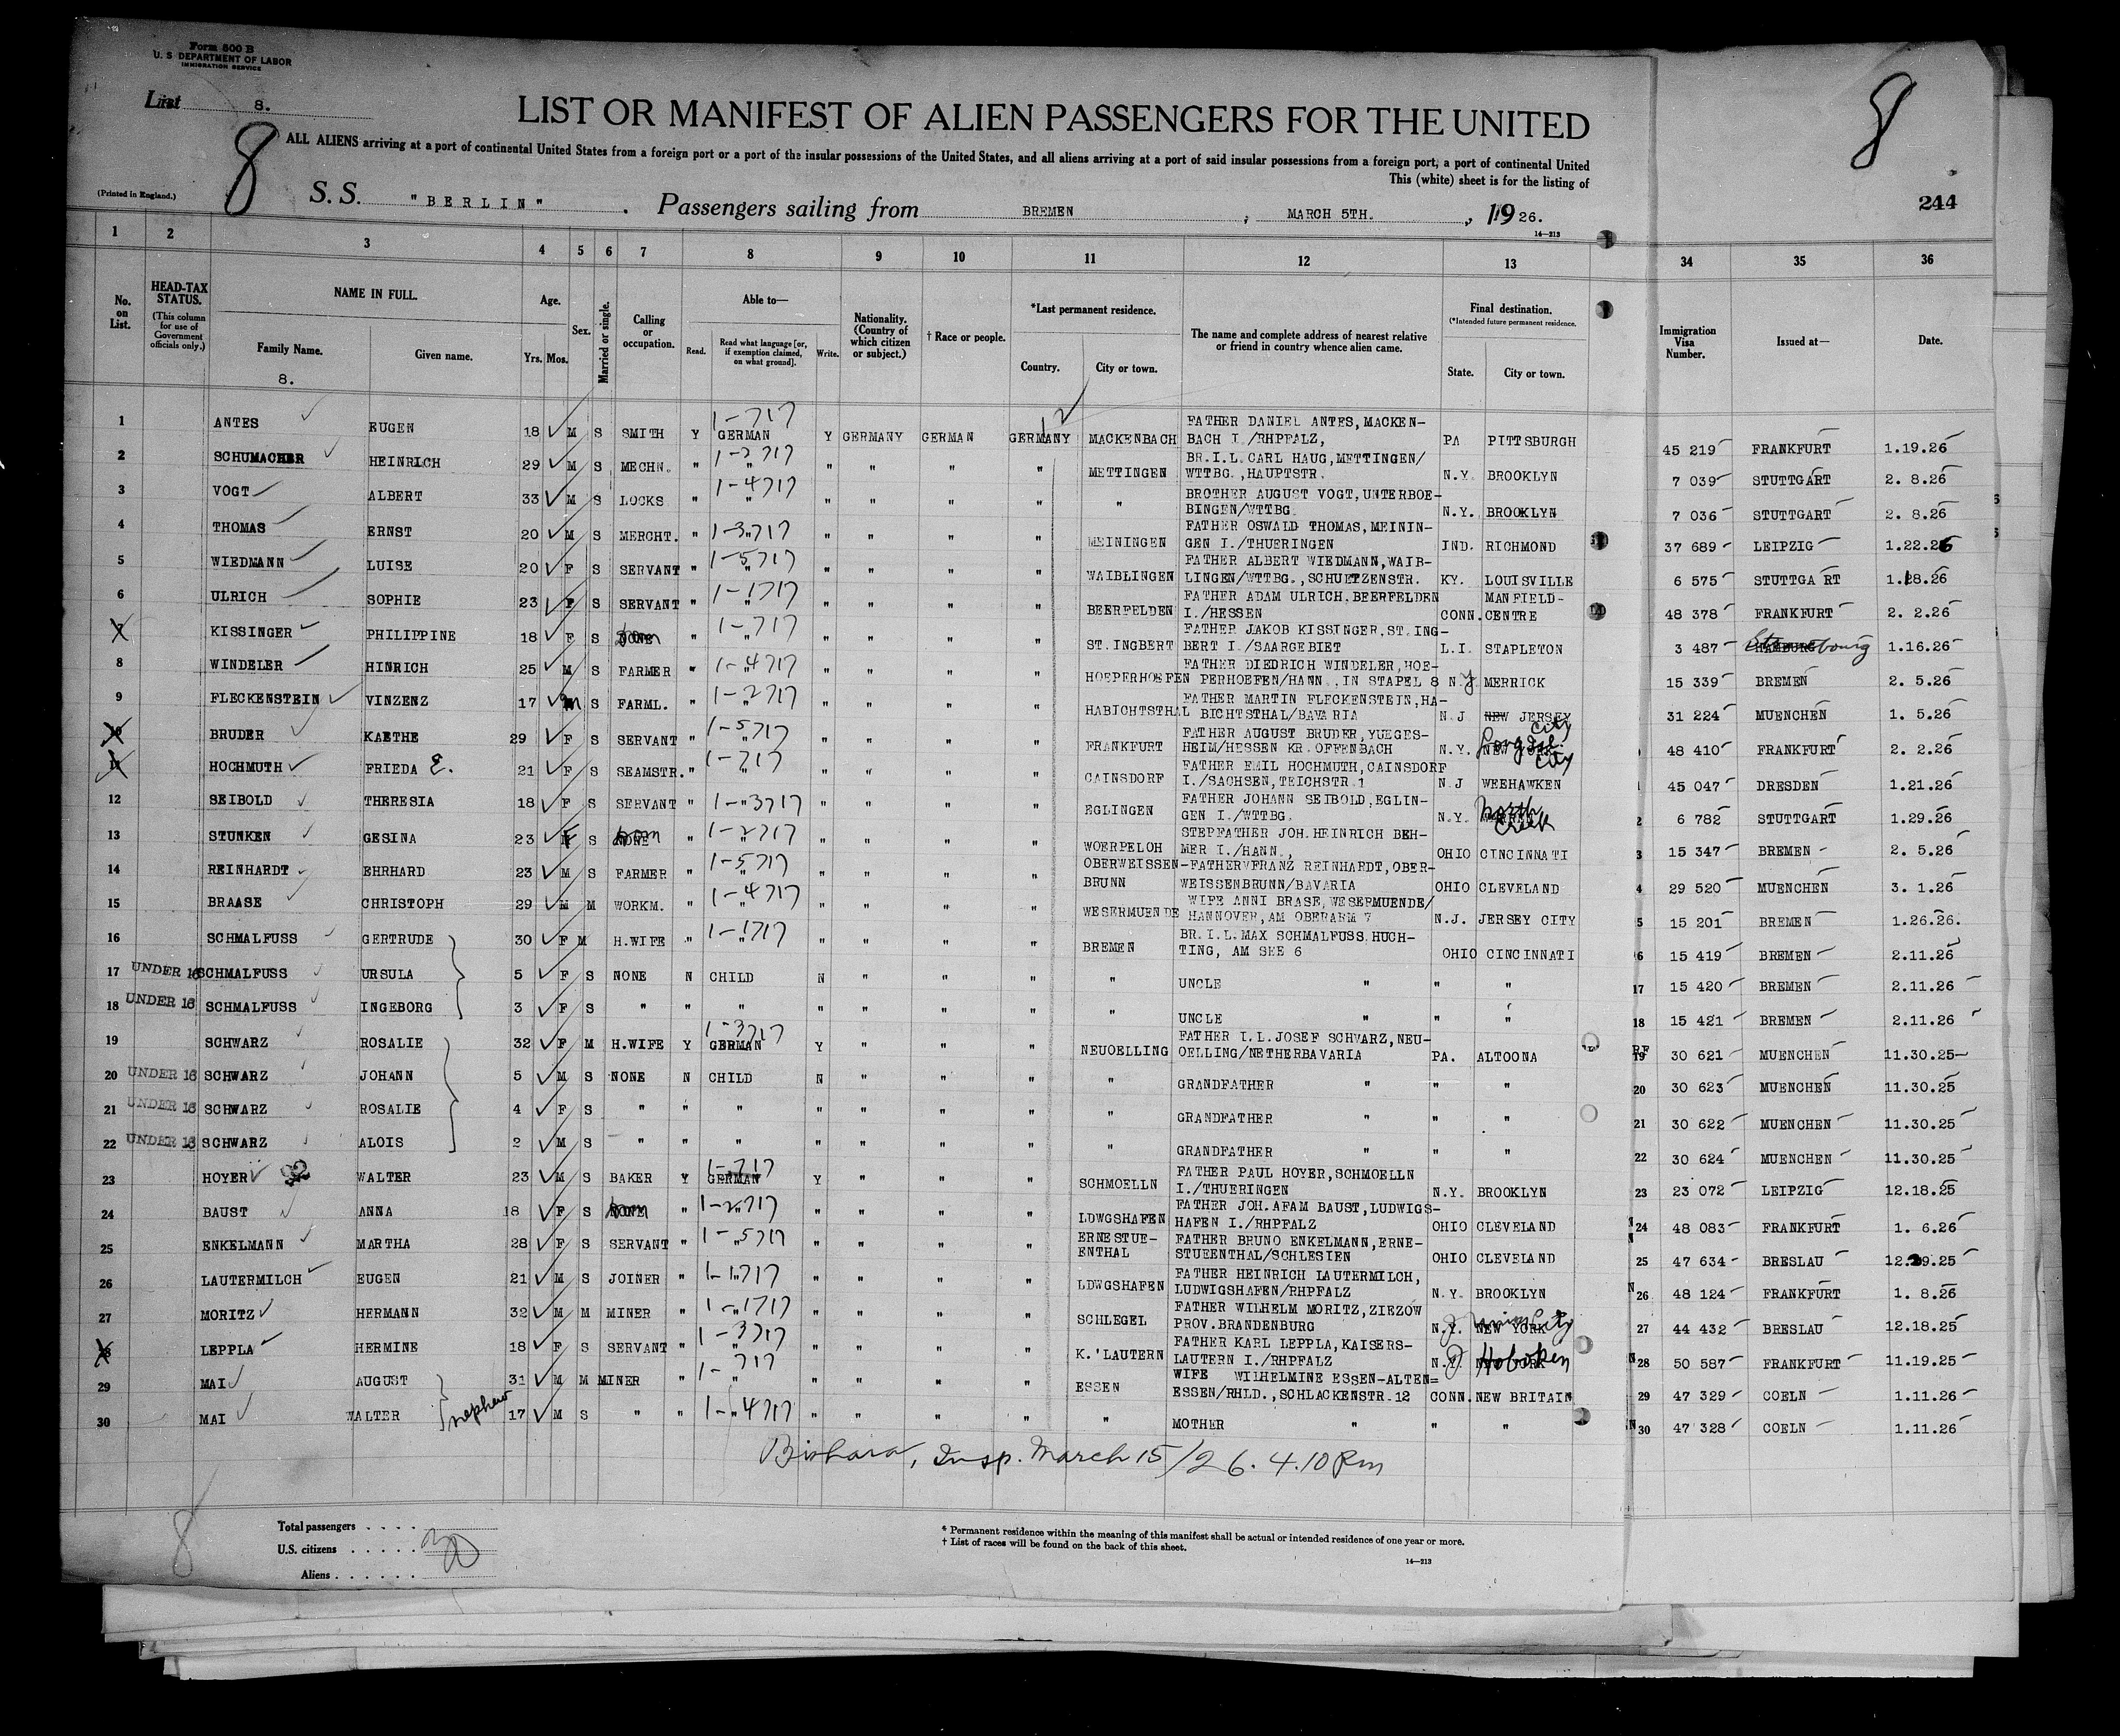 Form 500 B
U. S. DEPARTMENT OF LABOR
IMMIGRATION SERVICE
List 8.
8
8
LIST OR MANIFEST OF ALIEN PASSENGERS FOR THE UNITED
ALL ALIENS arriving at a port of continental United States from a foreign port or a port of the insular possessions of the United States, and all aliens arriving at a port of said insular possessions from a foreign port, a port of continental United
This (white) sheet is for the listing of
(Printed in England.)
S. S. "BERLIN" . Passengers sailing from BREMEN , MARCH 5TH. , 1926.
244
14—213
1 2 3 4 5 6 7 8 9 10 11 12 13 34 35 36
No. on List.
HEAD-TAX STATUS.
(This column for use of Government officials only.)
NAME IN FULL.
Family Name. Given name.
8.
Age.
Yrs. Mos.
Sex.
Married or single.
Calling or occupation.
Able to—
Read. Read what language [or, if exemption claimed, on what ground]. Write.
Nationality. (Country of which citizen or subject.)
† Race or people.
*Last permanent residence.
Country. City or town.
The name and complete address of nearest relative or friend in country whence alien came.
Final destination.
(*Intended future permanent residence.
State. City or town.
Immigration Visa Number.
Issued at—
Date.
1 ANTES EUGEN 18 M S SMITH Y GERMAN 1-717 Y GERMANY GERMAN GERMANY MACKENBACH FATHER DANIEL ANTES, MACKEN-
BACH I./RHPFALZ, PA PITTSBURGH 45 219 FRANKFURT 1.19.26
2 SCHUMACHER HEINRICH 29 M S MECHN. " 1-2717 " " " " " METTINGEN BR.I.L.CARL HAUG,METTINGEN/
WTTBG.,HAUPTSTR. N.Y. BROOKLYN 7 039 STUTTGART 2. 8.26
3 VOGT ALBERT 33 M S LOCKS " 1-4717 " " " " " " BROTHER AUGUST VOGT,UNTERBOE-
BINGEN/WTTBG. N.Y. BROOKLYN 7 036 STUTTGART 2. 8.26
4 THOMAS ERNST 20 M S MERCHT. " 1-3717 " " " " " MEININGEN FATHER OSWALD THOMAS,MEININ-
GEN I./THUERINGEN JND. RICHMOND 37 689 LEIPZIG 1.22.26
5 WIEDMANN LUISE 20 F S SERVANT " 1-5717 " " " " " WAIBLINGEN FATHER ALBERT WIEDMANN,WAIB-
LINGEN/WTTBG.,SCHUETZENSTR. KY. LOUISVILLE 6 575 STUTTGART 1.28.26
6 ULRICH SOPHIE 23 F S SERVANT " 1-1717 " " " " " BEERFELDEN FATHER ADAM ULRICH.BEERFELDEN
I./HESSEN CONN. MANFIELD-CENTRE 48 378 FRANKFURT 2. 2.26
7 KISSINGER PHILIPPINE 18 F S Dom " 1-717 " " " " " ST.INGBERT FATHER JAKOB KISSINGER,ST.ING-
BERT I./SAARGEBIET L.I. STAPLETON 3 487 Strassbourg 1.16.26
8 WINDELER HINRICH 25 M S FARMER " 1-4717 " " " " " HOEPERHOEFEN FATHER DIEDRICH WINDELER,HOE-
PERHOEFEN/HANN.,IN STAPEL 8 N.Y MERRICK 15 339 BREMEN 2. 5.26
9 FLECKENSTEIN VINZENZ 17 M S FARML. " 1-2717 " " " " " HABICHTSTHAL FATHER MARTIN FLECKENSTEIN,HA-
BICHTSTHAL/BAVARIA N J NEW JERSEY City 31 224 MUENCHEN 1. 5.26
10 BRUDER KAETHE 29 F S SERVANT " 1-5717 " " " " " FRANKFURT FATHER AUGUST BRUDER,YUEGES-
HEIM/HESSEN KR.OFFENBACH N.Y. NEW YORK Long Isl City 48 410 FRANKFURT 2. 2.26
11 HOCHMUTH FRIEDA E. 21 F S SEAMSTR. " 1-717 " " " " " CAINSDORF FATHER EMIL HOCHMUTH,CAINSDORF
I./SACHSEN,TEICHSTR.1 N J WEEHAWKEN 45 047 DRESDEN 1.21.26
12 SEIBOLD THERESIA 18 F S SERVANT " 1-3717 " " " " " EGLINGEN FATHER JOHANN SEIBOLD,EGLIN-
GEN I./WTTBG. N.Y. North Creek 6 782 STUTTGART 1.29.26
13 STUNKEN GESINA 23 F S Dom " 1-2717 " " " " " WOERPELOH STEPFATHER JOH.HEINRICH BEH-
MER I./HANN., OHIO CINCINNATI 15 347 BREMEN 2. 5.26
14 REINHARDT EHRHARD 23 M S FARMER " 1-5717 " " " " " OBERWEISSEN-BRUNN FATHER FRANZ REINHARDT,OBER-
WEISSENBRUNN/BAVARIA OHIO CLEVELAND 29 520 MUENCHEN 3. 1.26
15 BRAASE CHRISTOPH 29 M M WORKM. " 1-4717 " " " " " WESERMUENDE WIFE ANNI BRASE,WESERMUENDE/
HANNOVER,AM OBERARM 7 N.J. JERSEY CITY 15 201 BREMEN 1.26.26.
16 SCHMALFUSS GERTRUDE 30 F M H.WIFE " 1-1717 " " " " " BREMEN BR.I.L.MAX SCHMALFUSS.HUCH-
TING, AM SEE 6 OHIO CINCINNATI 15 419 BREMEN 2.11.26
17 UNDER 16 SCHMALFUSS URSULA 5 F S NONE N CHILD N " " " " UNCLE " " " 17 15 420 BREMEN 2.11.26
18 UNDER 16 SCHMALFUSS INGEBORG 3 F S " " " " " " " " UNCLE " " " 18 15 421 BREMEN 2.11.26
19 SCHWARZ ROSALIE 32 F M H.WIFE Y GERMAN 1-3717 Y " " " NEUOELLING FATHER I.L.JOSEF SCHWARZ,NEU-
OELLING/NETHERBAVARIA PA. ALTOONA 19 30 621 MUENCHEN 11.30.25
20 UNDER 16 SCHWARZ JOHANN 5 M S NONE N CHILD N " " " " GRANDFATHER " " " 20 30 623 MUENCHEN 11.30.25
21 UNDER 16 SCHWARZ ROSALIE 4 F S " " " " " " " " GRANDFATHER " " " 21 30 622 MUENCHEN 11.30.25
22 UNDER 16 SCHWARZ ALOIS 2 M S " " " " " " " " GRANDFATHER " " " 22 30 624 MUENCHEN 11.30.25
23 HOYER WALTER 23 M S BAKER Y GERMAN 1-717 Y " " " SCHMOELLN FATHER PAUL HOYER,SCHMOELLN
I./THUERINGEN N.Y. BROOKLYN 23 23 072 LEIPZIG 12.18.25
24 BAUST ANNA 18 F S Dom " 1-2717 " " " " LDWGSHAFEN FATHER JOH.AFAM BAUST,LUDWIGS-
HAFEN I./RHPFALZ OHIO CLEVELAND 24 48 083 FRANKFURT 1. 6.26
25 ENKELMANN MARTHA 28 F S SERVANT " 1-5717 " " " " ERNESTUE-ENTHAL FATHER BRUNO ENKELMANN,ERNE-
STUEENTHAL/SCHLESIEN OHIO CLEVELAND 25 47 634 BRESLAU 12.29.25
26 LAUTERMILCH EUGEN 21 M S JOINER " 1-1717 " " " " LDWGSHAFEN FATHER HEINRICH LAUTERMILCH,
LUDWIGSHAFEN/RHPFALZ N.Y. BROOKLYN 26 48 124 FRANKFURT 1. 8.26
27 MORITZ HERMANN 32 M M MINER " 1-1717 " " " " SCHLEGEL FATHER WILHELM MORITZ,ZIEZOW
PROV.BRANDENBURG N.Y. NEW YORK City 27 44 432 BRESLAU 12.18.25
28 LEPPLA HERMINE 18 F S SERVANT " 1-3717 " " " " K.'LAUTERN FATHER KARL LEPPLA,KAISERS-
LAUTERN I./RHPFALZ N.J Hoboken 28 50 587 FRANKFURT 11.19.25
29 MAI AUGUST 31 M M MINER " 1-717 " " " " ESSEN WIFE WILHELMINE ESSEN-ALTEN=
ESSEN/RHLD.,SCHLACKENSTR.12 CONN. NEW BRITAIN 29 47 329 COELN 1.11.26
30 MAI WALTER nephew 17 M S " " 1-4717 " " " " " MOTHER " " " 30 47 328 COELN 1.11.26
Bishara, Insp. March 15/26. 4.10 Pm
8
Total passengers . . . .
U.S. citizens . . . . .
Aliens . . . . . .
30
* Permanent residence within the meaning of this manifest shall be actual or intended residence of one year or more.
† List of races will be found on the back of this sheet.
14—213